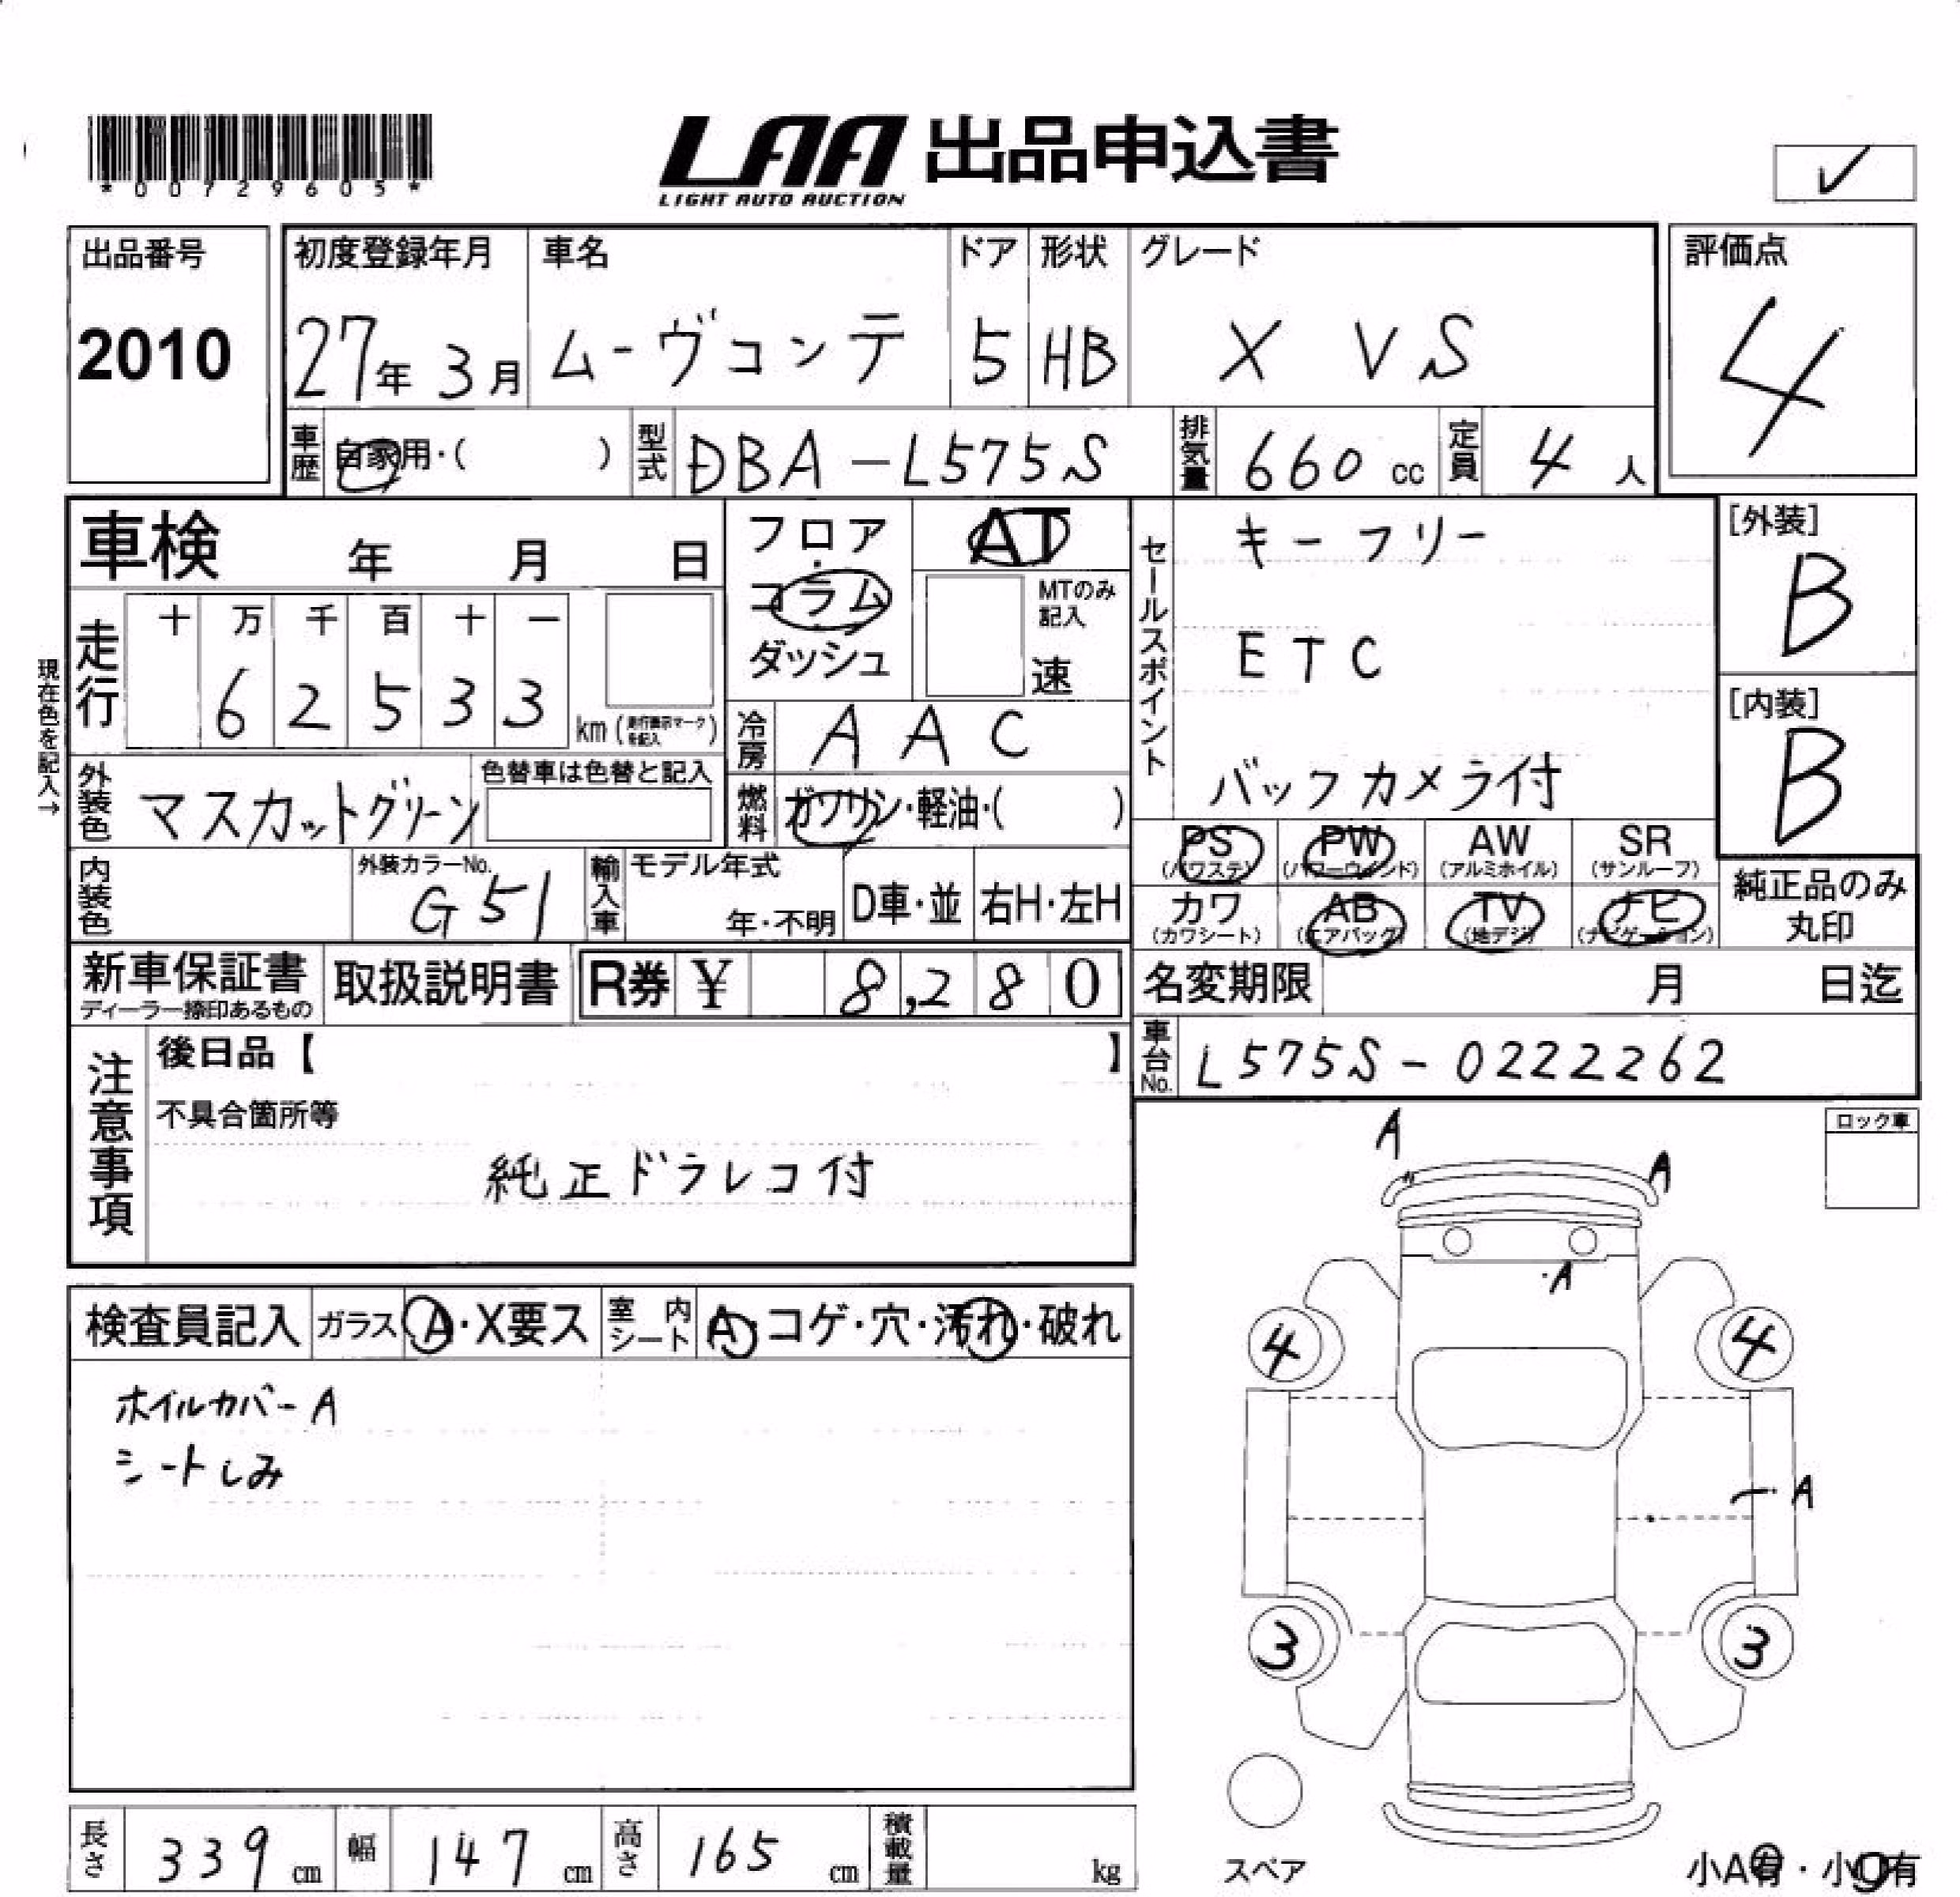 *00729605*
LAA 出品申込書
LIGHT AUTO AUCTION
✓
出品番号
2010
初度登録年月
27年 3月
車名
ムーヴコンテ
ドア
5
形状
HB
グレード
X VS
評価点
4
車歴
自家用・( )
型式
DBA-L575S
排気量
660 cc
定員
4 人
車検 年 月 日
フロア・
コラム
ダッシュ
AT
MTのみ
記入
速
セールスポイント
キーフリー
ETC
バックカメラ付
[外装]
B
[内装]
B
現在色を記入→
走行
十 万 千 百 十 一
6 2 5 3 3
km (走行表示マークを記入)
冷房
AAC
外装色
マスカットグリーン
色替車は色替と記入
燃料
ガソリン・軽油・( )
PS
(パワステ)
PW
(パワーウインド)
AW
(アルミホイル)
SR
(サンルーフ)
内装色
外装カラーNo.
G51
輸入車
モデル年式
年・不明
D車・並
右H・左H
カワ
(カワシート)
AB
(エアバック)
TV
(地デジ)
ナビ
(ナビゲーション)
純正品のみ
丸印
新車保証書
ディーラー捺印あるもの
取扱説明書
R券 ¥ 8,280
名変期限 月 日迄
注意事項
後日品【 】
不具合箇所等
純正ドラレコ付
車台No.
L575S-0222262
ロック車
A
A
A
4
4
A
3
3
スペア
小A有・小 有
検査員記入
ガラス
A・X要ス
室内シート
A・コゲ・穴・汚れ・破れ
ホイルカバーA
シートしみ
長さ
339 cm
幅
147 cm
高さ
165 cm
積載量
kg